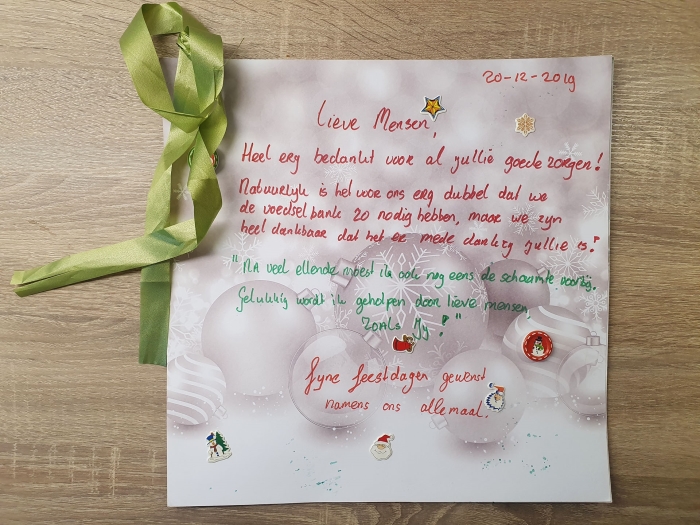 20-12-2019
Lieve Mensen,
Heel erg bedankt voor al jullie goede zorgen!
Natuurlijk is het voor ons erg dubbel dat we
de voedselbank zo nodig hebben, maar we zijn
heel dankbaar dat het er mede dankzij jullie is!
"Na veel ellende moest ik ook nog eens de schaamte voorbij.
Gelukkig wordt ik geholpen door lieve mensen,
zoals jij!"
Fijne feestdagen gewenst
namens ons allemaal.